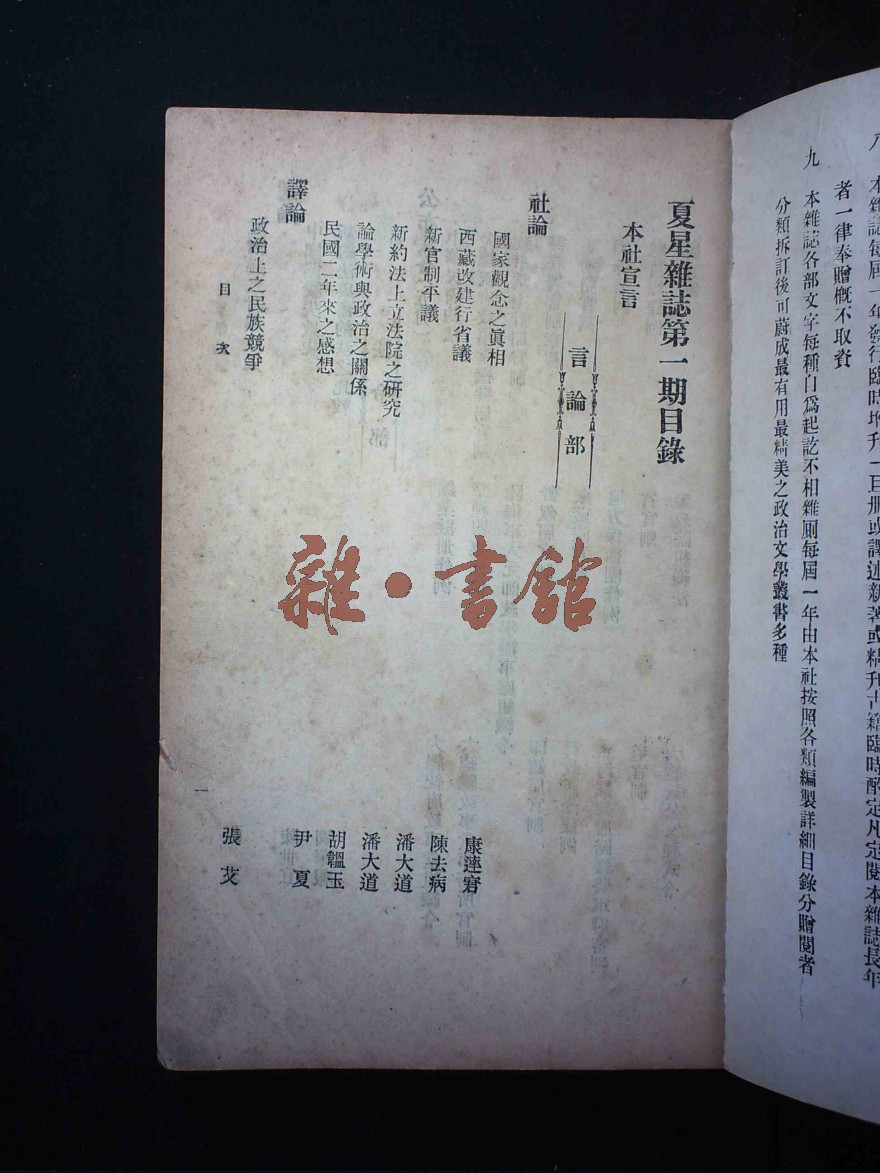 本雜誌每屆一年發行臨時增刊一巨冊或譯述新著或精刊古籍臨時酌定凡定閱本雜誌長年
者一律奉贈概不取資
九 本雜誌各部文字每種自爲起訖不相雜厠每屆一年由本社按照各類編製詳細目錄分贈閱者
分類拆訂後可蔚成最有用最精美之政治文學叢書多種
夏星雜誌第一期目錄
本社宣言
言論部
社論
國家觀念之眞相 康
西藏改建行省議 陳去病
新官制平議 潘大道
新約法上立法院之研究 潘大道
論學術與政治之關係 胡韞玉
民國二年來之感想 尹夏
譯論
政治上之民族競爭 張
目次
一
雜·書館